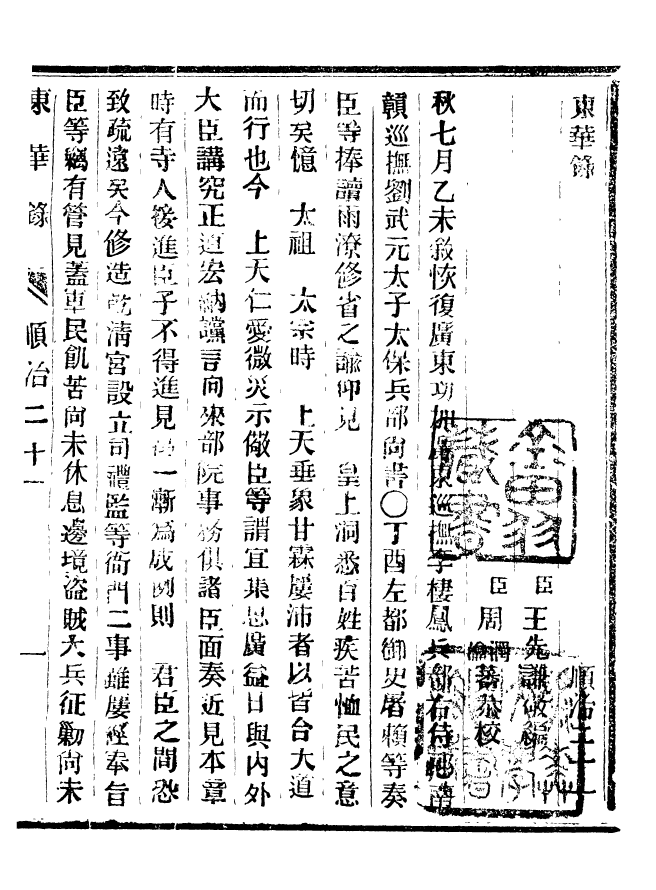 東華錄
順治二十一
臣王先謙敬編
臣周潤蕃周渝蕃恭校
秋七月乙未敘恢復廣東功加廣東巡撫李棲鳳兵部右侍郎南
贛巡撫劉武元太子太保兵部尚書○丁酉左都御史屠賴等奏
臣等捧讀雨潦修省之諭仰見 皇上洞悉百姓疾苦恤民之意
切矣憶 太祖 太宗時 上天垂象甘霖屢沛者以皆合大道
而行也今 上天仁愛微災示儆臣等謂宜集思廣益日與內外
大臣講究正道宏納讜言向來部院事務俱諸臣面奏近見本章
時有寺人接進臣子不得進見若一漸為成例則 君臣之間恐
致疏遠矣今修造乾清宮設立司禮監等衙門二事雖屢經奉旨
臣等竊有管見蓋軍民飢苦尚未休息邊境盜賊大兵征勦尚未
東華錄 順治二十一 一